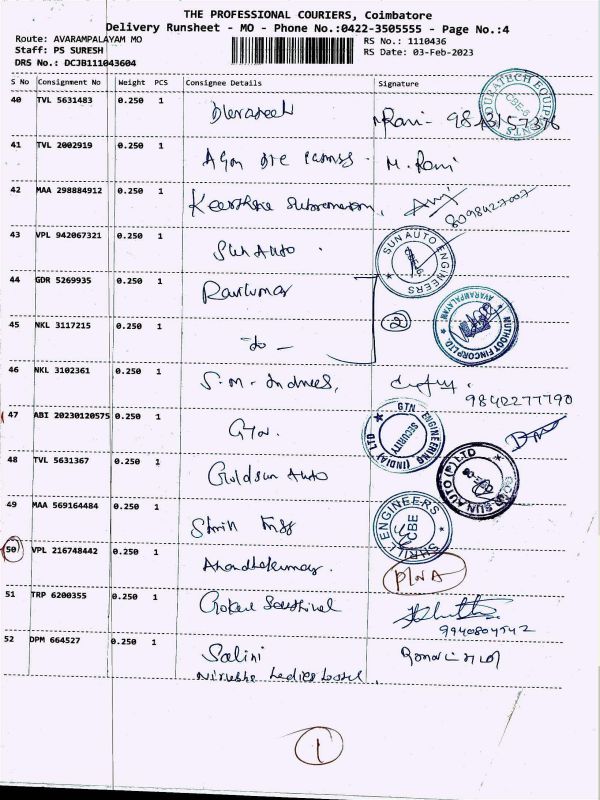 THE PROFESSIONAL COURIERS, Coimbatore
Delivery Runsheet - MO - Phone No.:0422-3505555 - Page No.:4
Route: AVARAMPALAYAM MO
Staff: PS SURESH
DRS No.: DCJB111043604
RS No.: 1110436
RS Date: 03-Feb-2023
S No Consignment No Weight PCS Consignee Details Signature
40 TVL 5631483 0.250 1 Rani - 9843157376
DURATECH EQUIPMENTS CBE-6
41 TVL 2002919 0.250 1 M. Rani
42 MAA 298884912 0.250 1
8098427007
43 VPL 942067321 0.250 1 Sun Auto
SUN AUTO ENGINEERS
44 GDR 5269935 0.250 1 Ravikumar
2
MUTHOOT FINCORP LTD AVARAMPALAYAM
45 NKL 3117215 0.250 1 do -
46 NKL 3102361 0.250 1 S.M.
9842277790
47 ABI 20230120575 0.250 1 GTN.
GTN ENGINEERING (INDIA) LTD SECURITY
48 TVL 5631367 0.250 1 Goldsun Auto
SUN AUTO (P) LTD
49 MAA 569164484 0.250 1 Engg
SHRILL ENGINEERS CBE
50 VPL 216748442 0.250 1 Anandhakumar. P/NA
51 TRP 6200355 0.250 1 Gokul Senthivel
9940804542
52 DPM 664527 0.250 1 Salini
Ladies hostel
1